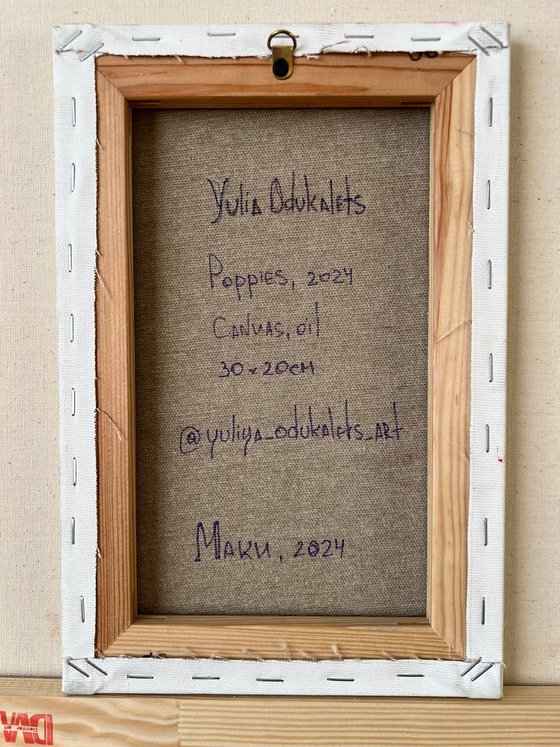 Yulia Odukalets
Poppies, 2024
Canvas, oil
30×20cm
@yuliya_odukalets_art
Маки, 2024